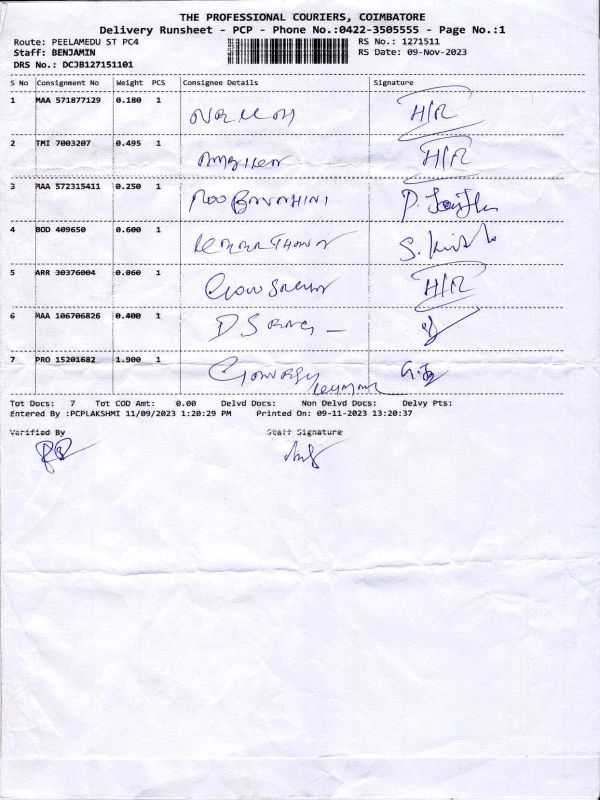 THE PROFESSIONAL COURIERS, COIMBATORE
Delivery Runsheet - PCP - Phone No.:0422-3505555 - Page No.:1
Route: PEELAMEDU ST PC4 RS No.: 1271511
Staff: BENJAMIN RS Date: 09-Nov-2023
DRS No.: DCJB127151101
S No Consignment No Weight PCS Consignee Details Signature
1 MAA 571877129 0.180 1 H/R
2 TMI 7003207 0.495 1 H/R
3 MAA 572315411 0.250 1
4 BOD 409650 0.600 1
5 ARR 30376004 0.860 1 H/R
6 MAA 106706826 0.400 1
7 PRO 15201682 1.900 1
Tot Docs: 7 Tot COD Amt: 0.00 Delvd Docs: Non Delvd Docs: Delvy Pts:
Entered By :PCPLAKSHMI 11/09/2023 1:20:29 PM Printed On: 09-11-2023 13:20:37
Verified By Staff Signature